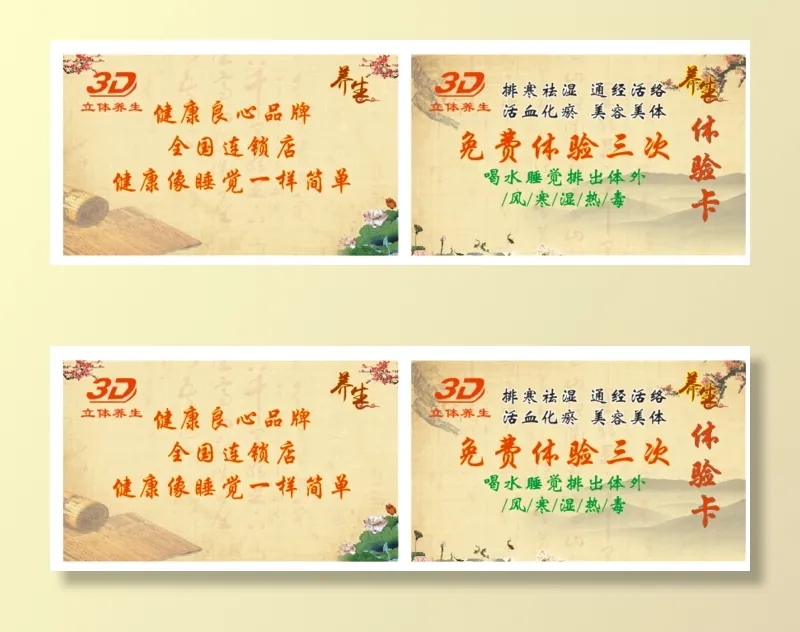 3D
立体养生
养生
健康良心品牌
全国连锁店
健康像睡觉一样简单
3D
立体养生
排寒祛湿 通经活络
活血化瘀 美容美体
养生
免费体验三次
喝水睡觉排出体外
/风/寒/湿/热/毒
体验卡
3D
立体养生
养生
健康良心品牌
全国连锁店
健康像睡觉一样简单
3D
立体养生
排寒祛湿 通经活络
活血化瘀 美容美体
养生
免费体验三次
喝水睡觉排出体外
/风/寒/湿/热/毒
体验卡